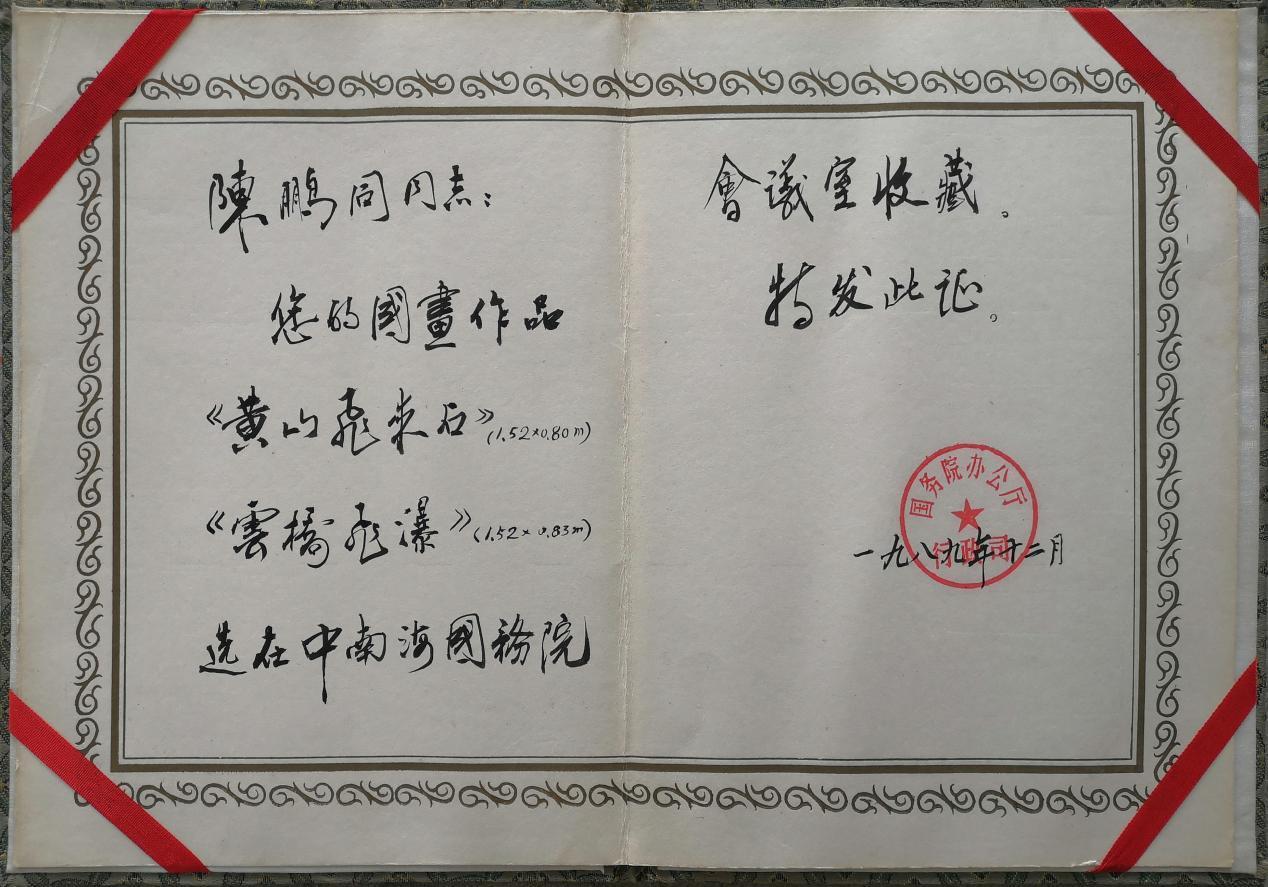 陳鵬同同志：
您的國畫作品
《黄山飛来石》(1.52×0.80m)
《雲橋飛瀑》(1.52×0.83m)
选在中南海國務院
會議室收藏。
特发此证。
国务院办公厅
行政司
一九八九年十二月